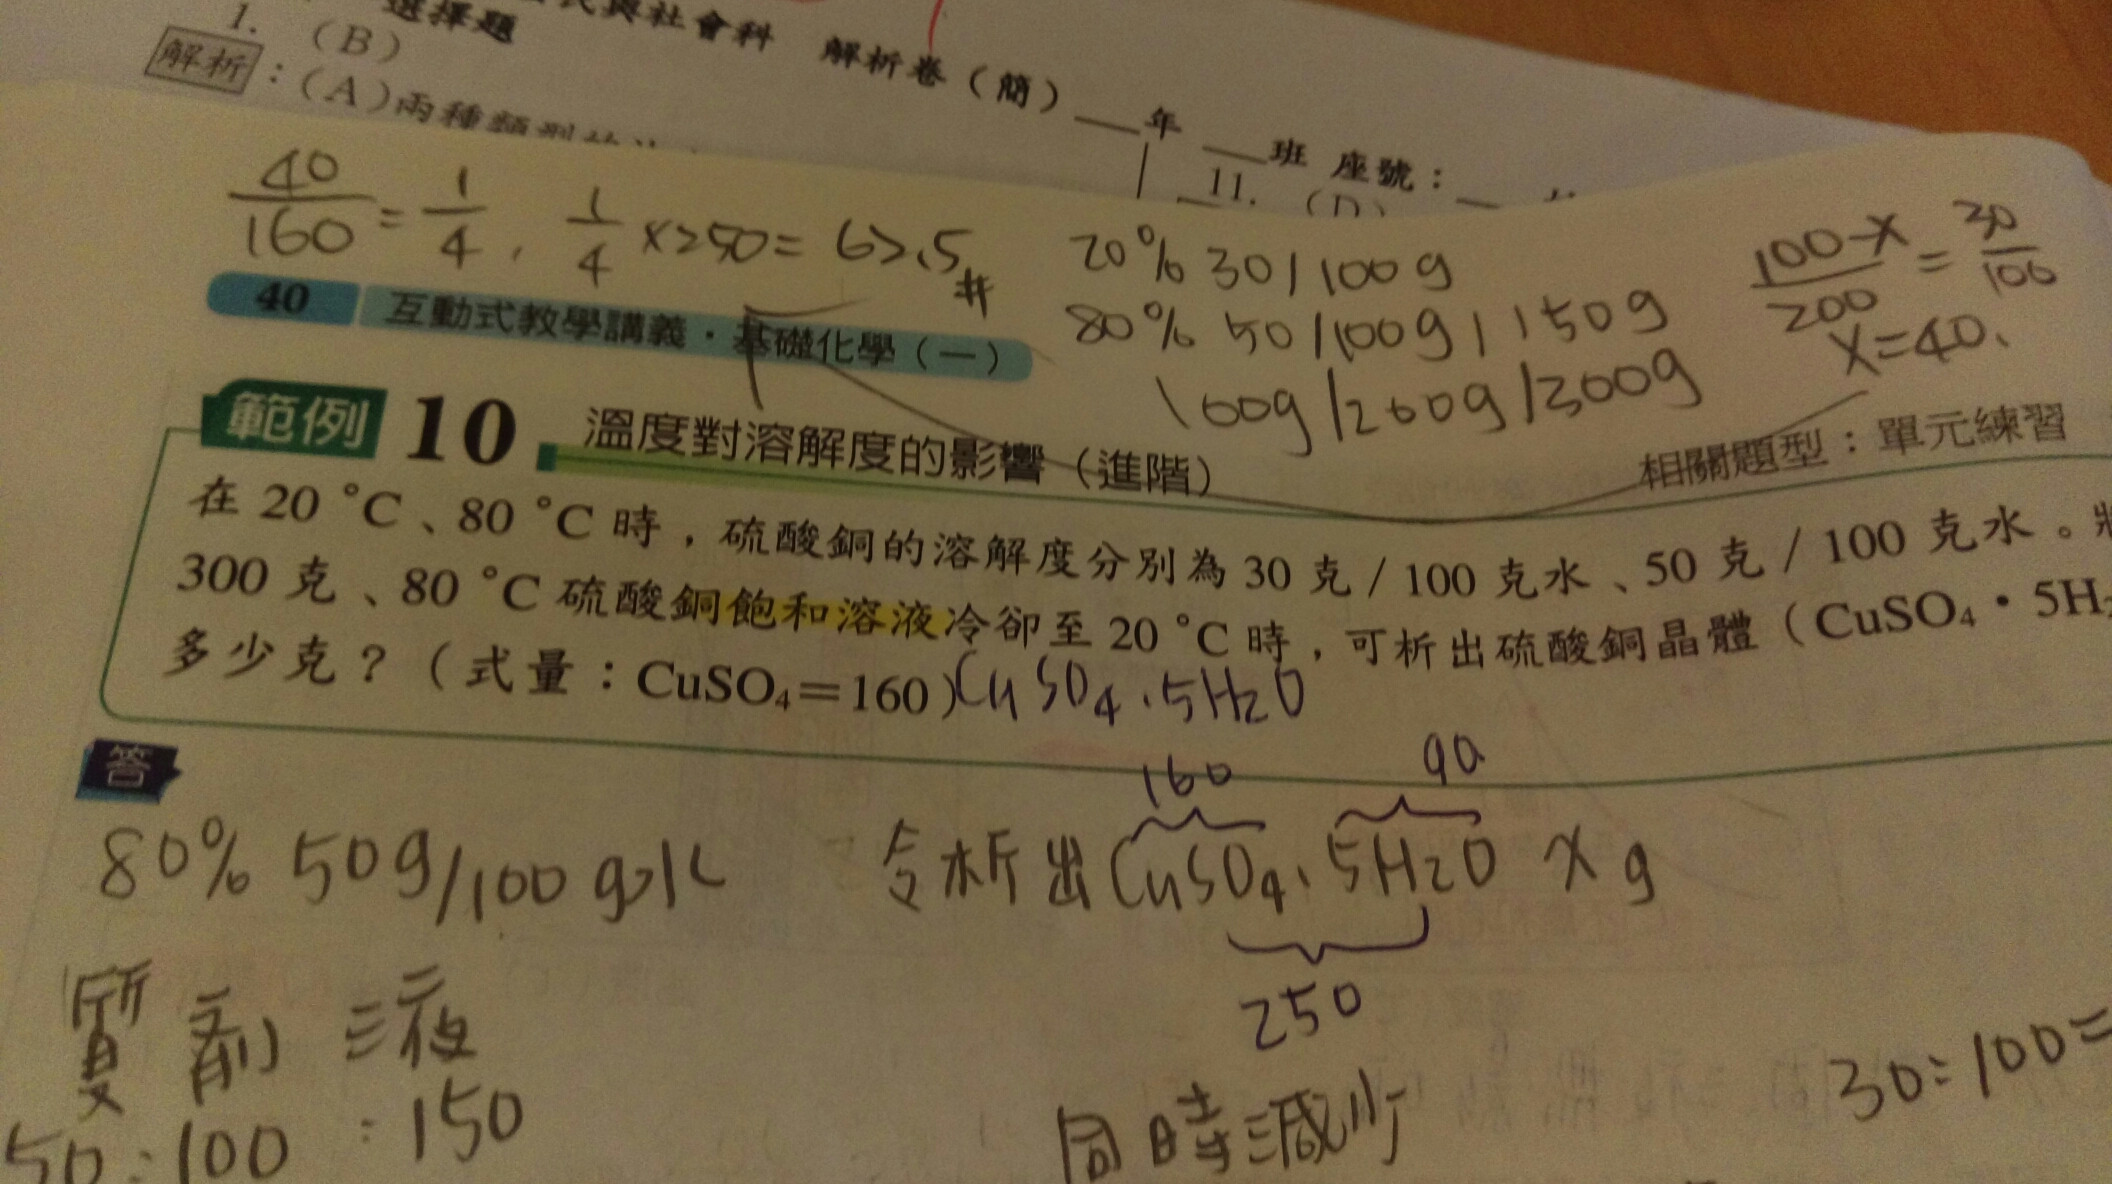 與社會科 解析卷(簡)__年__班 座號:__
選擇題
1. (B)
解析:(A)兩種類型
11. (D)
40/160=1/4, 1/4×250=62.5#
20% 30/100g
80% 50/100g/150g
100g/200g/300g
100-x/200=30/100
x=40.
40 互動式教學講義·基礎化學(一)
範例 10 溫度對溶解度的影響(進階)
相關題型:單元練習
在 20 °C、80 °C 時,硫酸銅的溶解度分別為 30 克/100 克水、50 克/100 克水。
300 克、80 °C 硫酸銅飽和溶液冷卻至 20 °C 時,可析出硫酸銅晶體(CuSO₄·5H
多少克?(式量:CuSO₄=160)CuSO₄·5H₂O
答
160 90
80% 50g/100g水 令析出CuSO₄·5H₂O xg
250
質 劑 液
50:100:150
同時減少
30:100=